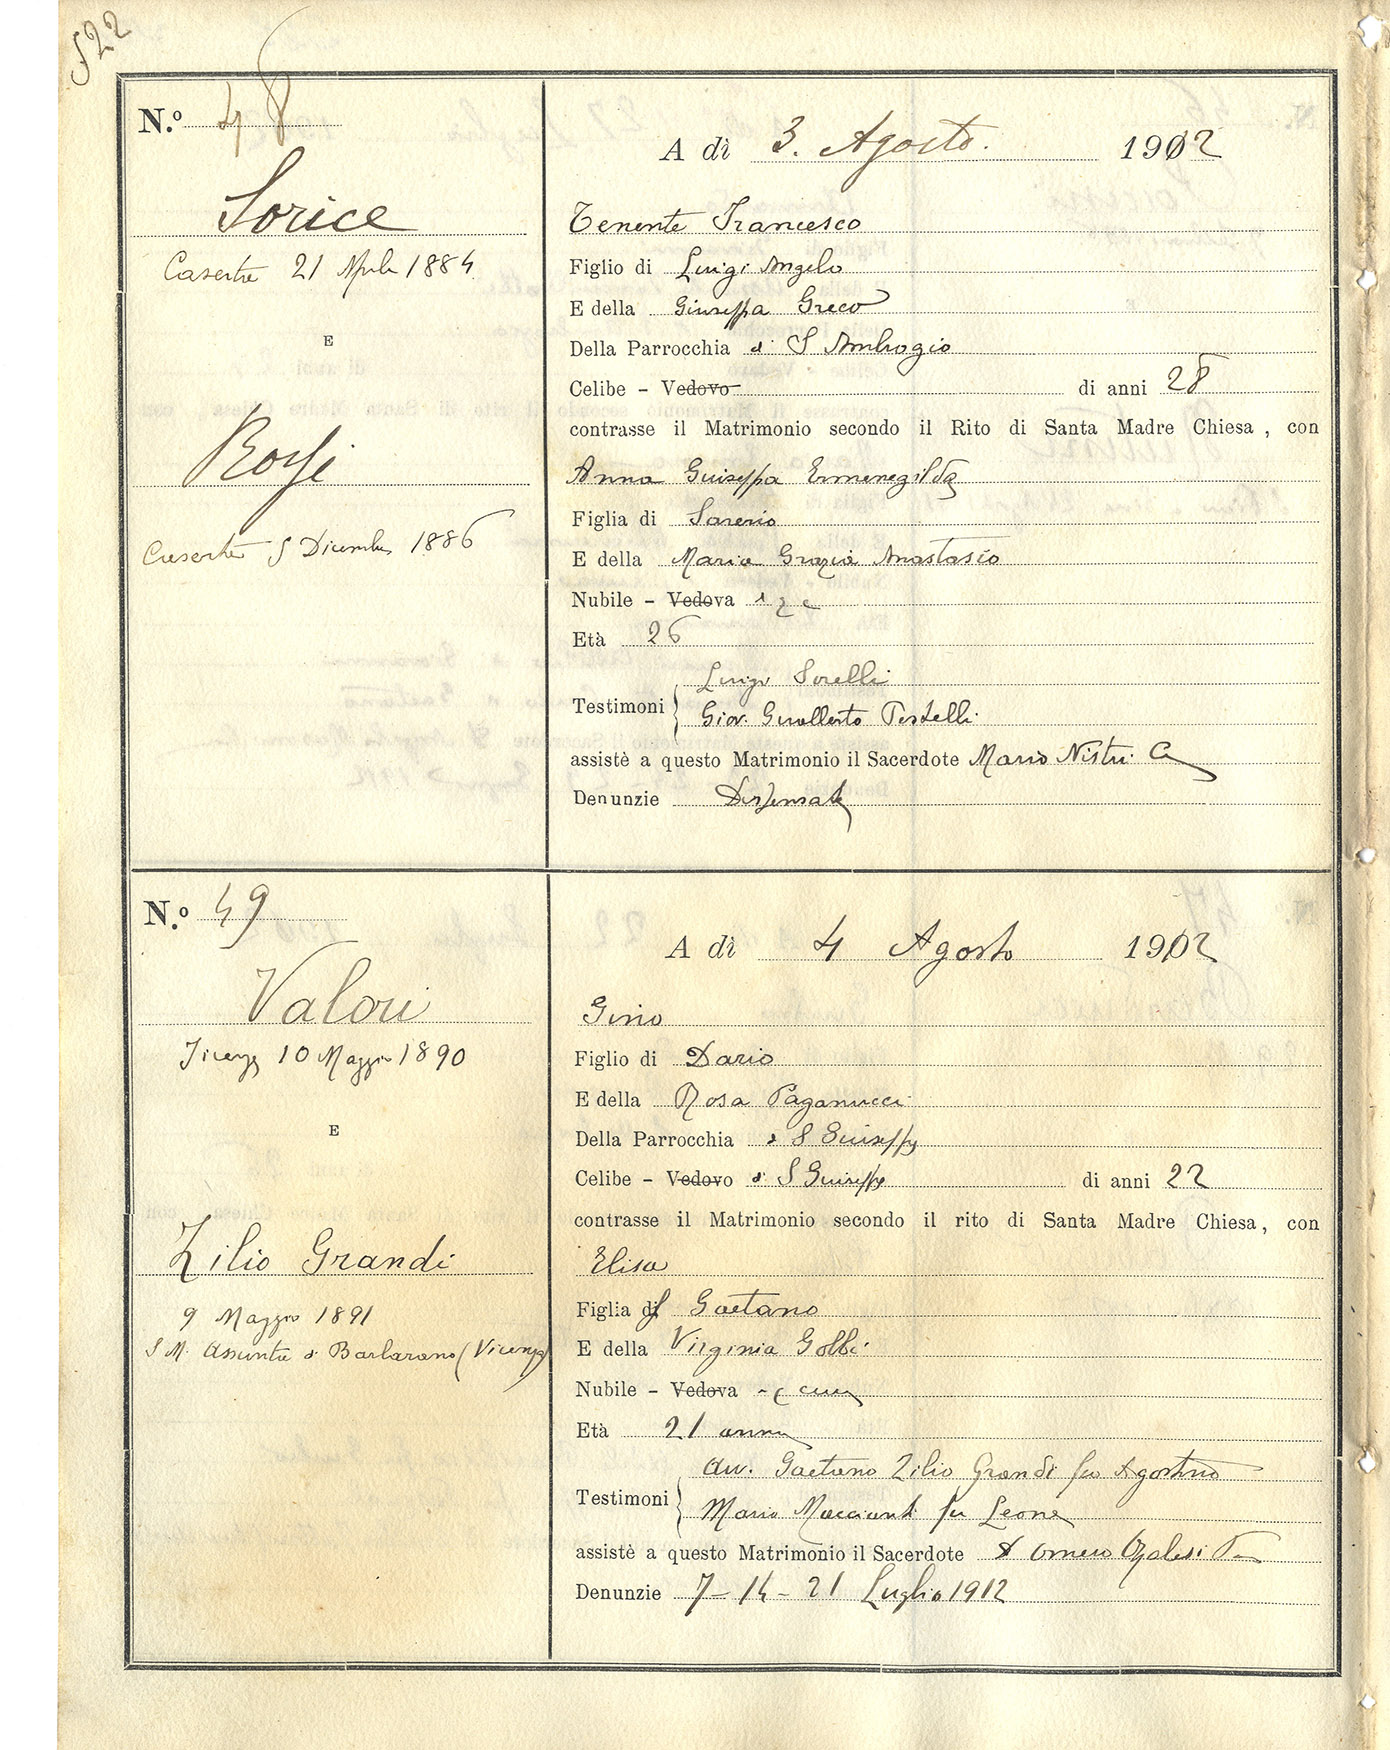 522
N.º 48
A dì 3. Agosto. 1912
Sorice
Caserta 21 Aprile 1884
E
Rossi
Caserta 5 Dicembre 1886
Tenente Francesco
Figlio di Luigi Angelo
E della Giuseppa Greco
Della Parrocchia di S Ambrogio
Celibe - Vedovo di anni 28
contrasse il Matrimonio secondo il Rito di Santa Madre Chiesa, con
Anna Giuseppa Ermenegilda
Figlia di
E della Maria Grazia Anastasio
Nubile - Vedova
Età 26
Luigi Sorelli
Testimoni
Giov. Gualberto Testelli
assistè a questo Matrimonio il Sacerdote Mario Nistri
Denunzie Dispensate
N.º 49
A dì 4 Agosto 1912
Valori
Firenze 10 Maggio 1890
E
Zilio Grandi
9 Maggio 1891
S M. Assunta di Barbarano (Vicenza)
Gino
Figlio di Dario
E della Rosa Paganucci
Della Parrocchia di S Giuseppe
Celibe - Vedovo di S Giuseppe di anni 22
contrasse il Matrimonio secondo il rito di Santa Madre Chiesa, con
Elisa
Figlia di Gaetano
E della Virginia Golbi
Nubile - Vedova
Età 21 anni
avv. Gaetano Zilio Grandi fu Agostino
Testimoni
Mario Maccianti fu Leone
assistè a questo Matrimonio il Sacerdote
Denunzie 7 - 14 - 21 Luglio 1912